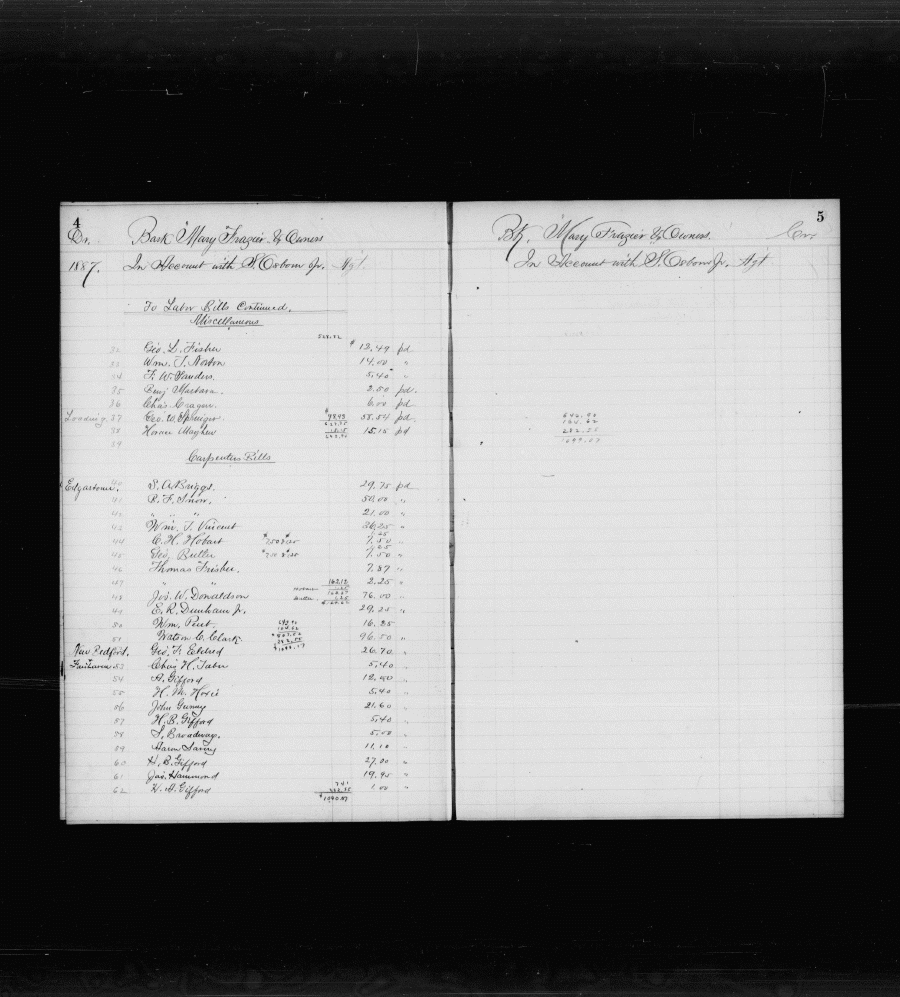 4
Dr. Bark "Mary Frazier" & Owners
1887. In Account with S. Osborn Jr. Agt.
To Labor Bills Continued.
Miscellaneous
32 Geo. L. Fisher $12.49 pd
33 Wm. S. Norton 14.00 "
34 F. W. Sanders. 5.40 "
35 Benj 2.50 pd.
36 Chas 6.00 pd
Loading. 37 Geo. W. 58.54 pd
38 Homer Mayhew 15.15 pd
39
Carpenters Bills
Edgartown. 40 S. A. Briggs. 29.75 pd
41 R. F. Snow. 50.00 "
42 " " " 21.00 "
43 Wm. T. Vincent 36.25 "
44 C. H. Hobart 7.50 "
45 Geo. Butler 7.50 "
46 Thomas Frisher. 7.87 "
47 " " 162.12 2.25 "
48 Jos. W. Donaldson 76.00 "
49 E. R. Dunham Jr. 29.25 "
50 Wm. 16.25 "
51 Watson C. Clark. 96.50 "
New Bedford. Geo. F. Eldred 26.70 "
Fairhaven 53 Chas H. Taber 5.40 "
54 A. Gifford 12.00 "
55 H. M. 5.40 "
56 John 21.60 "
57 H. B. Gifford 5.40 "
58 S. Broadway. 5.00 "
59 Aaron 11.10 "
60 H. B. Gifford 27.00 "
61 Jas. Hammond 19.95 "
62 H. A. Gifford 1.00 "
5
Bk. "Mary Frazier" & Owners. Cr.
In Account with S. Osborn Jr. Agt